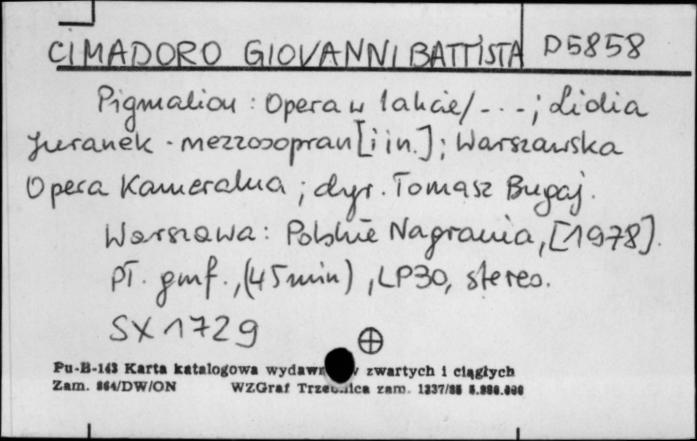 CIMADORO GIOVANNI BATTISTA D5858
Pigmalion : Opera w 1 akcie/ - - - ; Lidia
Juranek - mezzosopran [i in.] ; Warszawska
Opera Kameralna ; dyr. Tomasz Bugaj.
Warszawa : Polskie Nagrania, [1978].
Pł. gmf., (45 min) , LP30, stereo.
SX 1729
Pu-B-143 Karta katalogowa wydawn zwartych i ciągłych
Zam. 864/DW/ON WZGraf Trzebnica zam. 1237/88